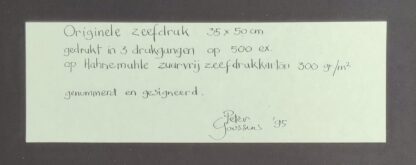 Originele zeefdruk 35 x 50 cm
gedrukt in 3 drukgangen op 500 ex.
op Hahnemuhle zuurvrij zeefdrukkarton 300 gr/m²
genummerd en gesigneerd.
Peter
Goossens '95